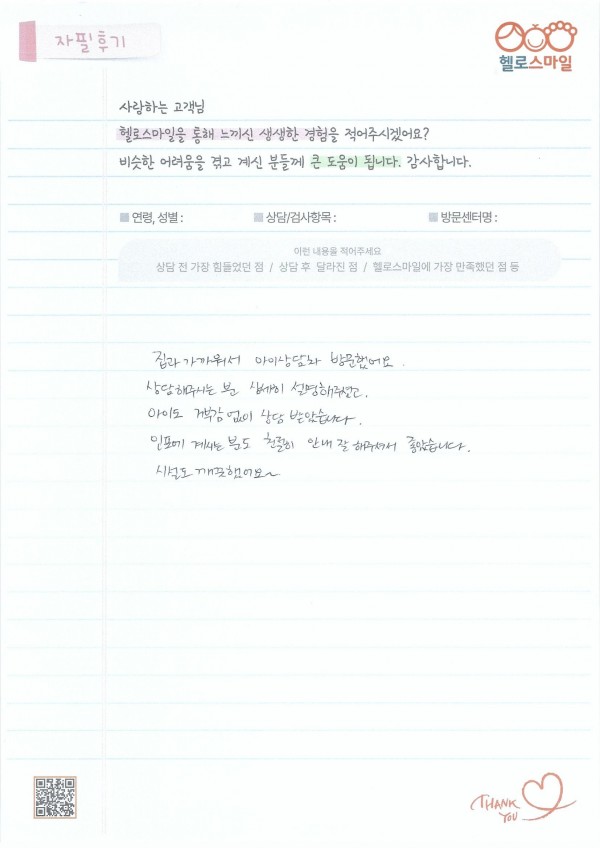 자필후기
헬로스마일
사랑하는 고객님
헬로스마일을 통해 느끼신 생생한 경험을 적어주시겠어요?
비슷한 어려움을 겪고 계신 분들께 큰 도움이 됩니다. 감사합니다.
연령, 성별 : 상담/검사항목 : 방문센터명 :
이런 내용을 적어주세요
상담 전 가장 힘들었던 점 / 상담 후 달라진 점 / 헬로스마일에 가장 만족했던 점 등
집과 가까워서 아이상담차 방문했어요.
상담해주시는 분 상세히 설명해주셨고,
아이도 거부감 없이 상담 받았습니다.
인포에 계시는 분도 친절히 안내 잘 해주셔서 좋았습니다.
시설도 깨끗했어요~
THANK
YOU